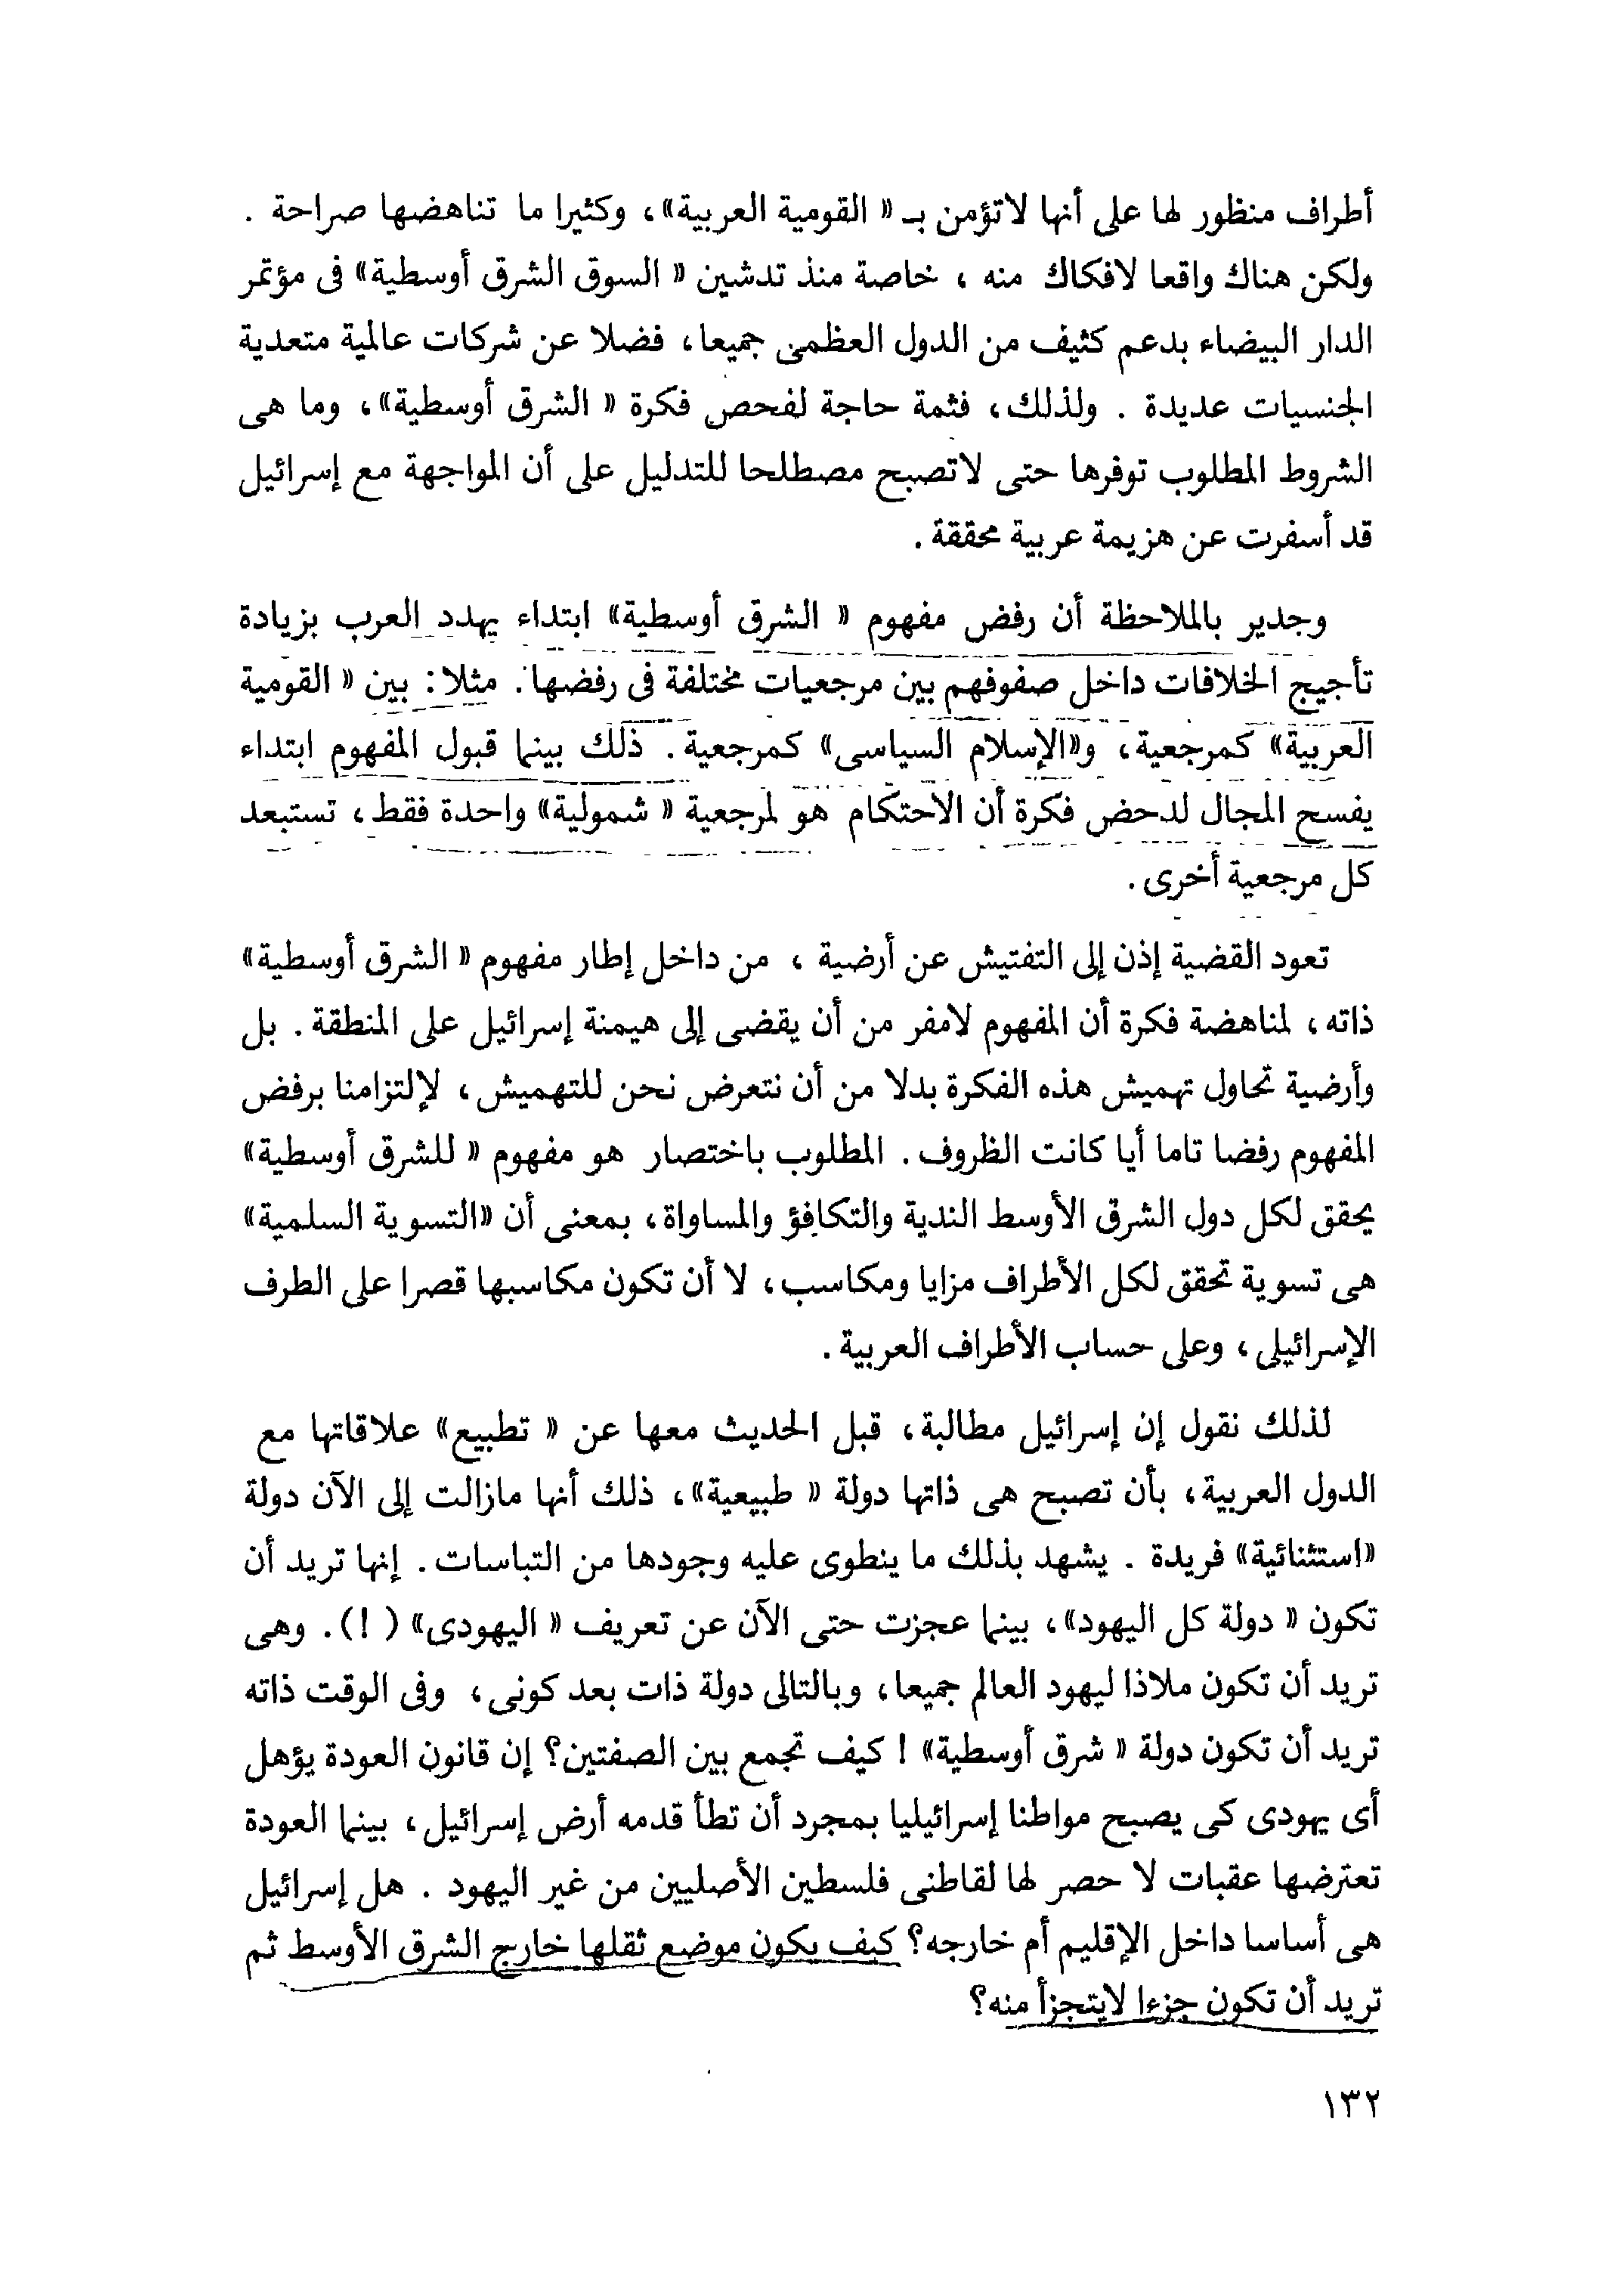 أطراف منظور لها على أنها لاتؤمن بـ « القومية العربية»، وكثيرا ما تناهضها صراحة .
ولكن هناك واقعا لافكاك منه ، خاصة منذ تدشين « السوق الشرق أوسطية» فى مؤتمر
الدار البيضاء بدعم كثيف من الدول العظمى جميعا، فضلا عن شركات عالمية متعدية
الجنسيات عديدة . ولذلك، فثمة حاجة لفحص فكرة « الشرق أوسطية»، وما هى
الشروط المطلوب توفرها حتى لاتصبح مصطلحا للتدليل على أن المواجهة مع إسرائيل
قد أسفرت عن هزيمة عربية محققة .
وجدير بالملاحظة أن رفض مفهوم « الشرق أوسطية» ابتداء يهدد العرب بزيادة
تأجيج الخلافات داخل صفوفهم بين مرجعيات مختلفة فى رفضها . مثلا : بين « القومية
العربية» كمرجعية، و«الإسلام السياسى» كمرجعية . ذلك بينما قبول المفهوم ابتداء
يفسح المجال لدحض فكرة أن الاحتكام هو لمرجعية « شمولية» واحدة فقط ، تستبعد
كل مرجعية أخرى .
تعود القضية إذن إلى التفتيش عن أرضية ، من داخل إطار مفهوم « الشرق أوسطية»
ذاته ، لمناهضة فكرة أن المفهوم لامفر من أن يقضى إلى هيمنة إسرائيل على المنطقة . بل
وأرضية تحاول تهميش هذه الفكرة بدلا من أن نتعرض نحن للتهميش ، لإلتزامنا برفض
المفهوم رفضا تاما أيا كانت الظروف . المطلوب باختصار هو مفهوم « للشرق أوسطية»
يحقق لكل دول الشرق الأوسط الندية والتكافؤ والمساواة، بمعنى أن «التسوية السلمية»
هى تسوية تحقق لكل الأطراف مزايا ومكاسب، لا أن تكون مكاسبها قصرا على الطرف
الإسرائيلى ، وعلى حساب الأطراف العربية .
لذلك نقول إن إسرائيل مطالبة، قبل الحديث معها عن « تطبيع» علاقاتها مع
الدول العربية، بأن تصبح هى ذاتها دولة « طبيعية»، ذلك أنها مازالت إلى الآن دولة
«استثنائية» فريدة . يشهد بذلك ما ينطوى عليه وجودها من التباسات . إنها تريد أن
تكون « دولة كل اليهود»، بينما عجزت حتى الآن عن تعريف « اليهودى» ( ! ). وهى
تريد أن تكون ملاذا ليهود العالم جميعا، وبالتالى دولة ذات بعد كونى، وفى الوقت ذاته
تريد أن تكون دولة « شرق أوسطية» ! كيف تجمع بين الصفتين؟ إن قانون العودة يؤهل
أى يهودى كى يصبح مواطنا إسرائيليا بمجرد أن تطأ قدمه أرض إسرائيل ، بينما العودة
تعترضها عقبات لا حصر لها لقاطنى فلسطين الأصليين من غير اليهود . هل إسرائيل
هى أساسا داخل الإقليم أم خارجه؟ كيف يكون موضع ثقلها خارج الشرق الأوسط ثم
تريد أن تكون جزءا لايتجزأ منه؟
١٣٢